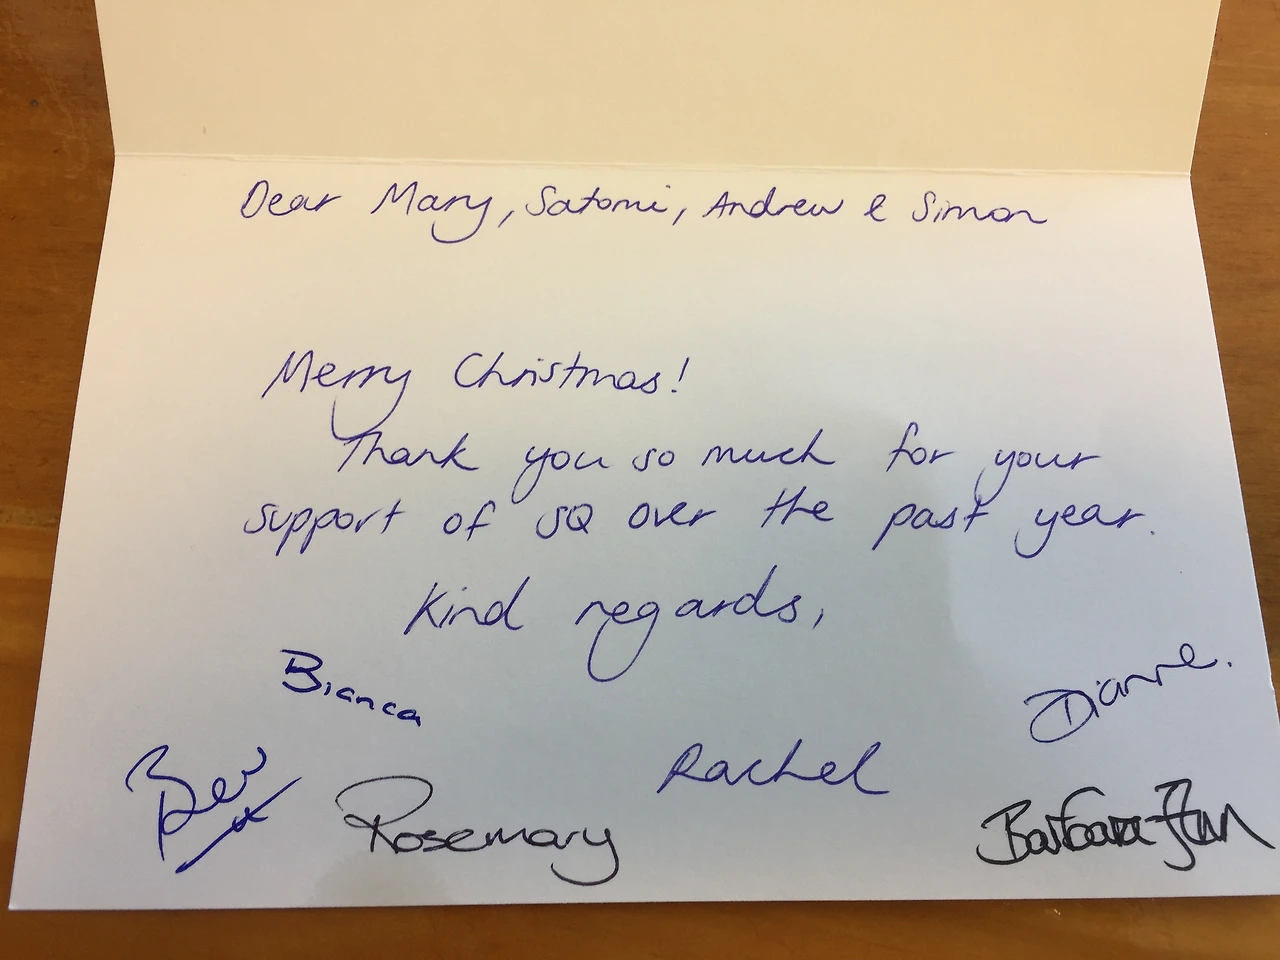 Dear Mary, Satomi, Andrew & Simon
Merry Christmas!
Thank you so much for your
support of SQ over the past year.
Kind regards,
Bianca
Dianne.
Bev x
Rachel
Rosemary
Barbara-Ann